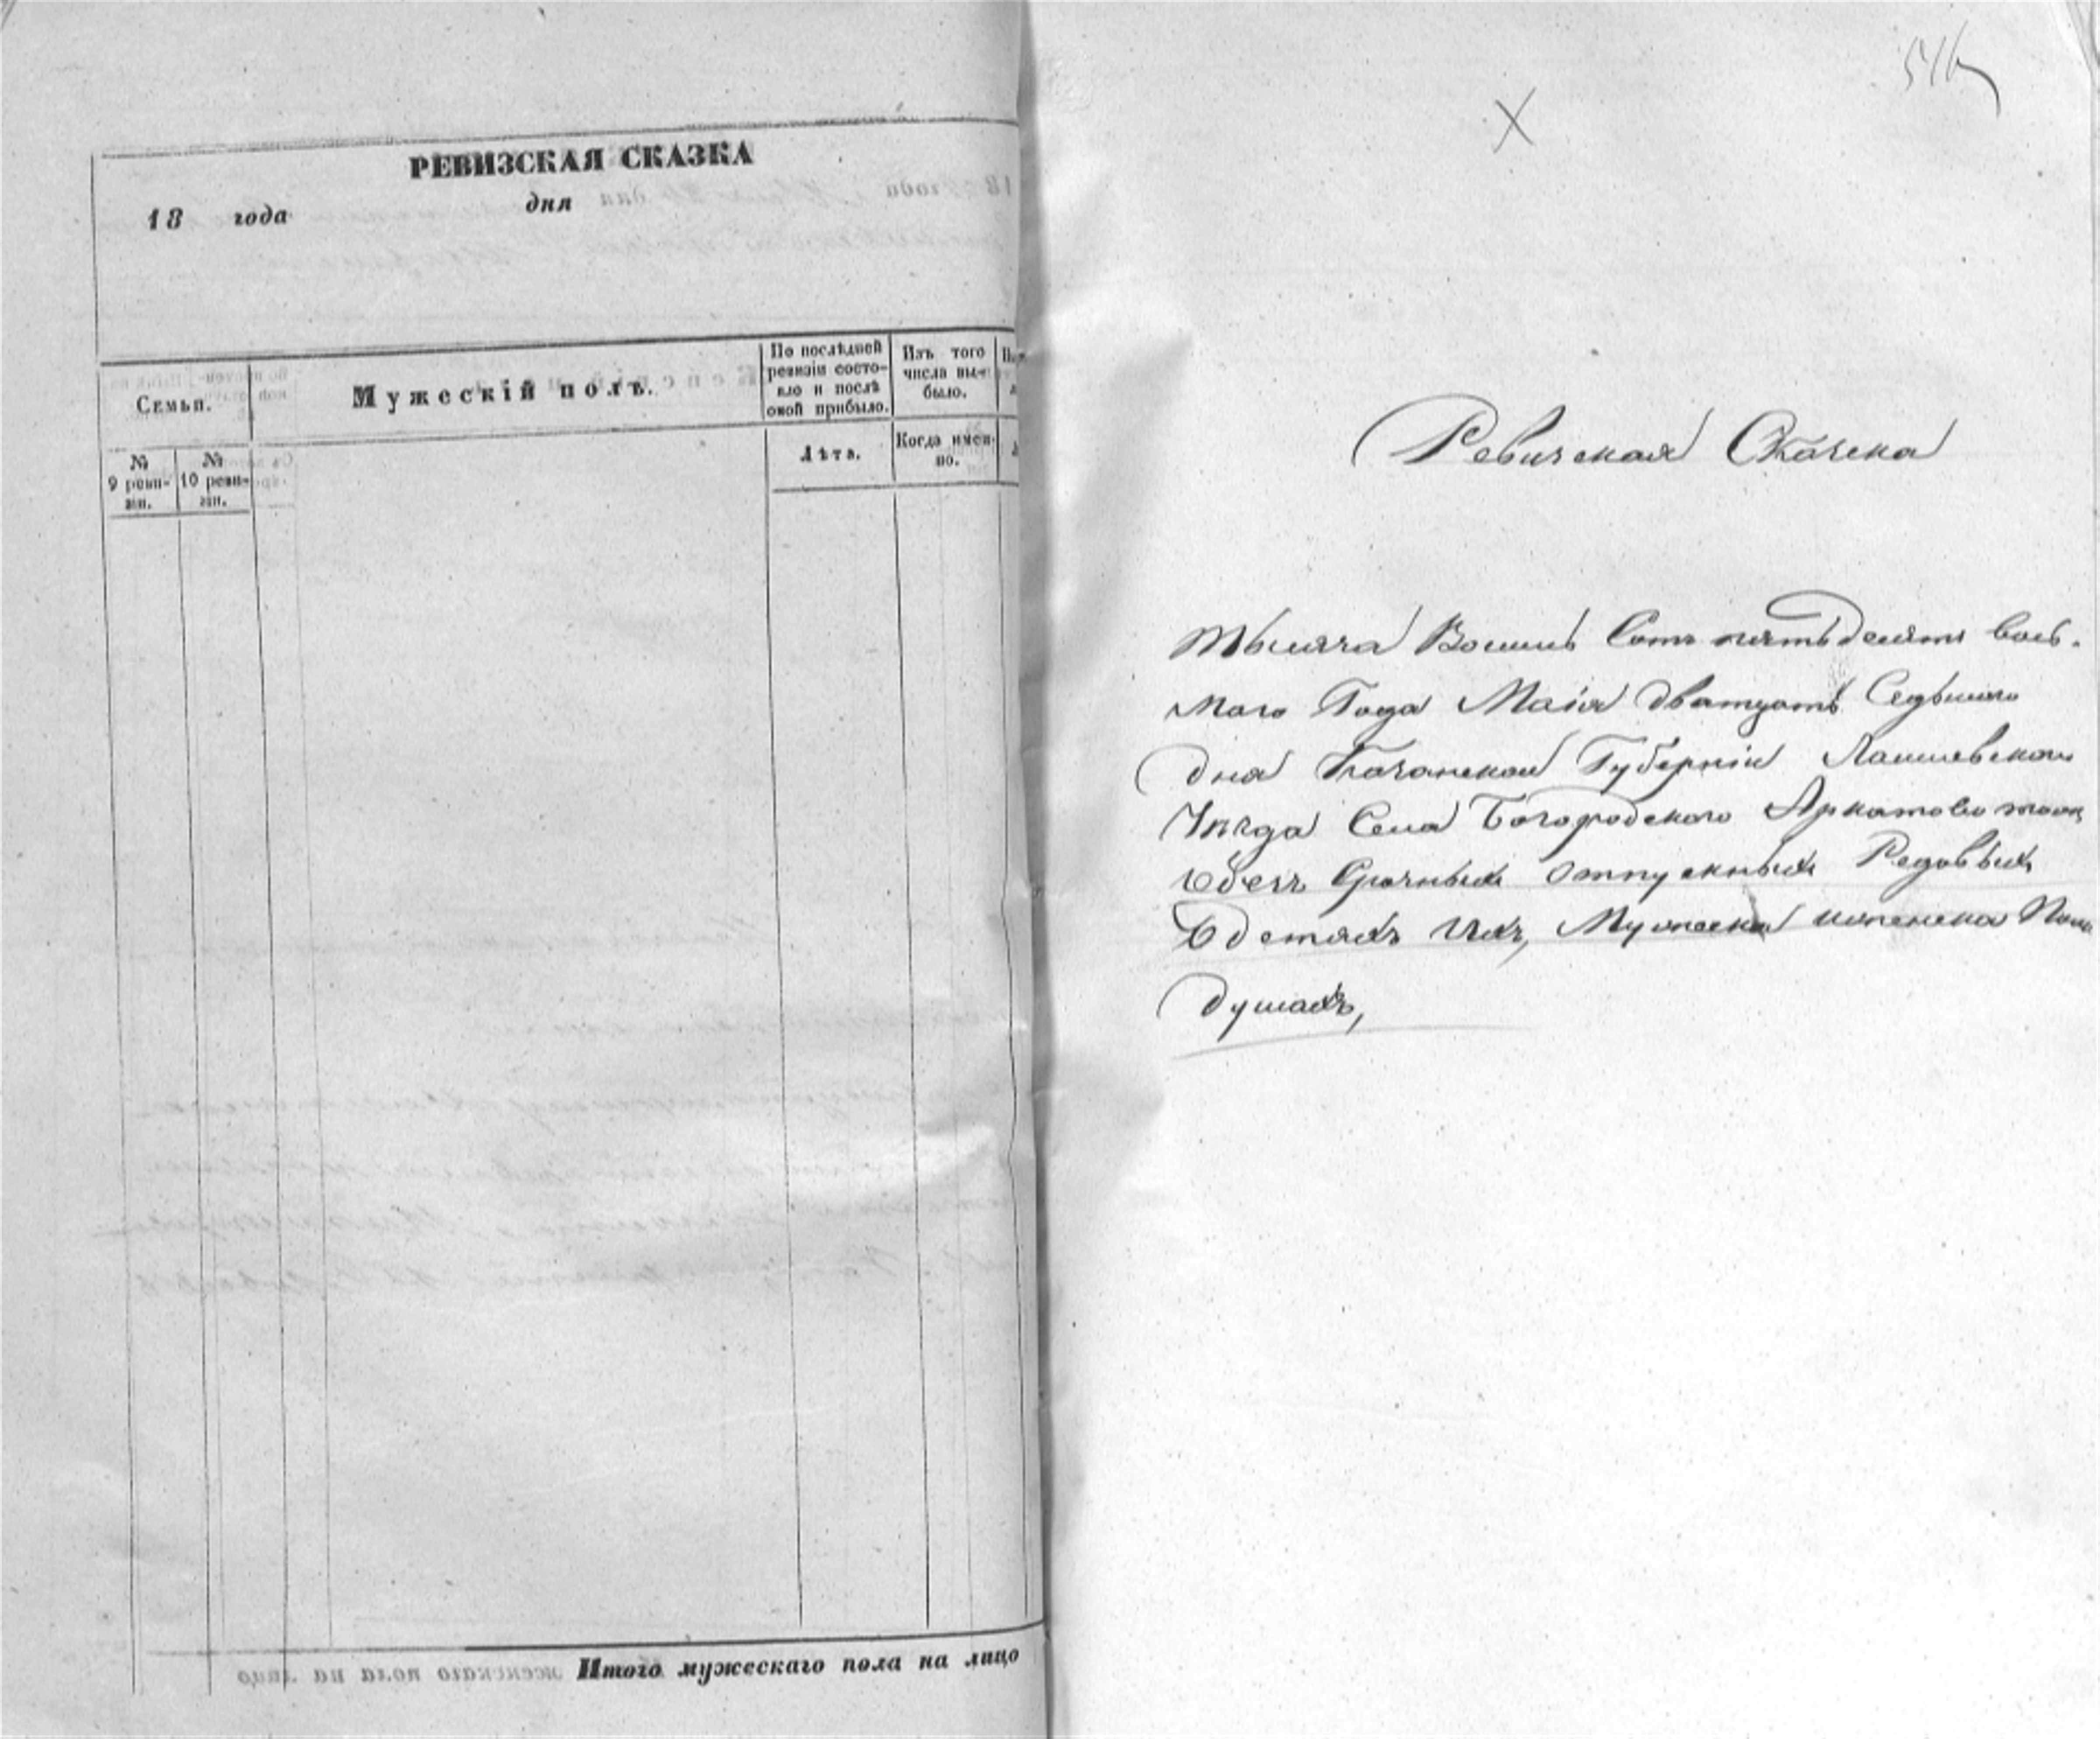 РЕВИЗСКАЯ СКАЗКА
18 года дня
Семьи.
Мужескій полъ.
По послѣдней
ревизіи состо-
яло и послѣ
оной прибыло.
Изъ того
числа вы-
было.
№
9 реви-
зіи.
№
10 реви-
зіи.
Лѣта.
Когда имен-
но.
Итого мужескаго пола на лицо
Ревизская Сказка
Тысяча Восимь Сотъ пятьдесятъ вось-
маго Года Маія дватцать Седьмаго
дня Казанской Губерніи Лаишевскаго
Уѣзда Села Богородского Аркатово тоож
Обезъ Срочныхъ Отпускныхъ Редовыхъ
О детяхъ Ихъ, Мужеска иженска Пола
душахъ,